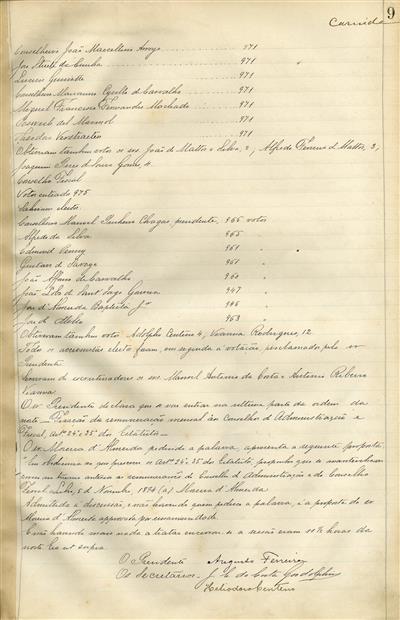 9
Conselheiro João Marcellino Arroyo 971
José Street da Cunha 971
Lucien Guinotte 971
Conselheiro Marianno Cyrillo de Carvalho 971
Miguel Francisco Fernandes Machado 971
Oswald del Marmol 971
Theodor Verstraeten 971
Obtiveram tambem votos os srs João de Mattos e Silva, 2, Alfredo Ferreira de Mattos, 3,
Joaquim Pires de Sousa Gomes, 4.
Conselho Fiscal
Votos entrados 975
Sahiram eleitos
Conselheiro Manuel Pinheiro Chagas, presidente, 966 votos
Alfredo da Silva 965 "
Edmond Penny 961 "
Gustave de Savoye 961 "
João Affonso de Carvalho 960 "
João Lobo de Sant'Iago Gouveia 947 "
José d'Almeida Baptista Jor 945 "
José d'Abreu
Obtiveram tambem votos Adolpho Centeno 4, Vianna Rodrigues, 12
Todos os accionistas eleitos foram, em seguida á votação, proclamados pelo sr
Presidente
Serviram de escrutinadores os srs. Manoel Antonio da Costa e Antonio Ribeiro
Vianna.
O sr Presidente declara que se vae entrar na ultima parte da ordem da
noite — Fixação da remuneração mensal ao Conselho d'Administração e
Fiscal, artos 24 e 35 dos Estatutos.
O sr. Moreira d'Almeida pedindo a palavra, apresenta a seguinte proposta:
"Em obediencia ao que prescrevem os Artos 24 e 35 dos Estatutos, proponho que se mantenham
como no anno anterior as remunerações do Conselho d'Administração e do Conselho
Fiscal. Lisboa, 5 de Novembro 1894 (a) Moreira d'Almeida
Admittida á discussão, e não havendo quem pedisse a palavra, é a proposta do sr
Moreira d'Almeida approvada por unanimidade.
E não havendo mais nada a tratar encerrou-se a sessão eram 11 ½ horas da
noute Era ut supra.
O Presidente Augusto Ferreira
Os Secretarios. J. C. da Costa Goodolphim
Heliodoro Centeno